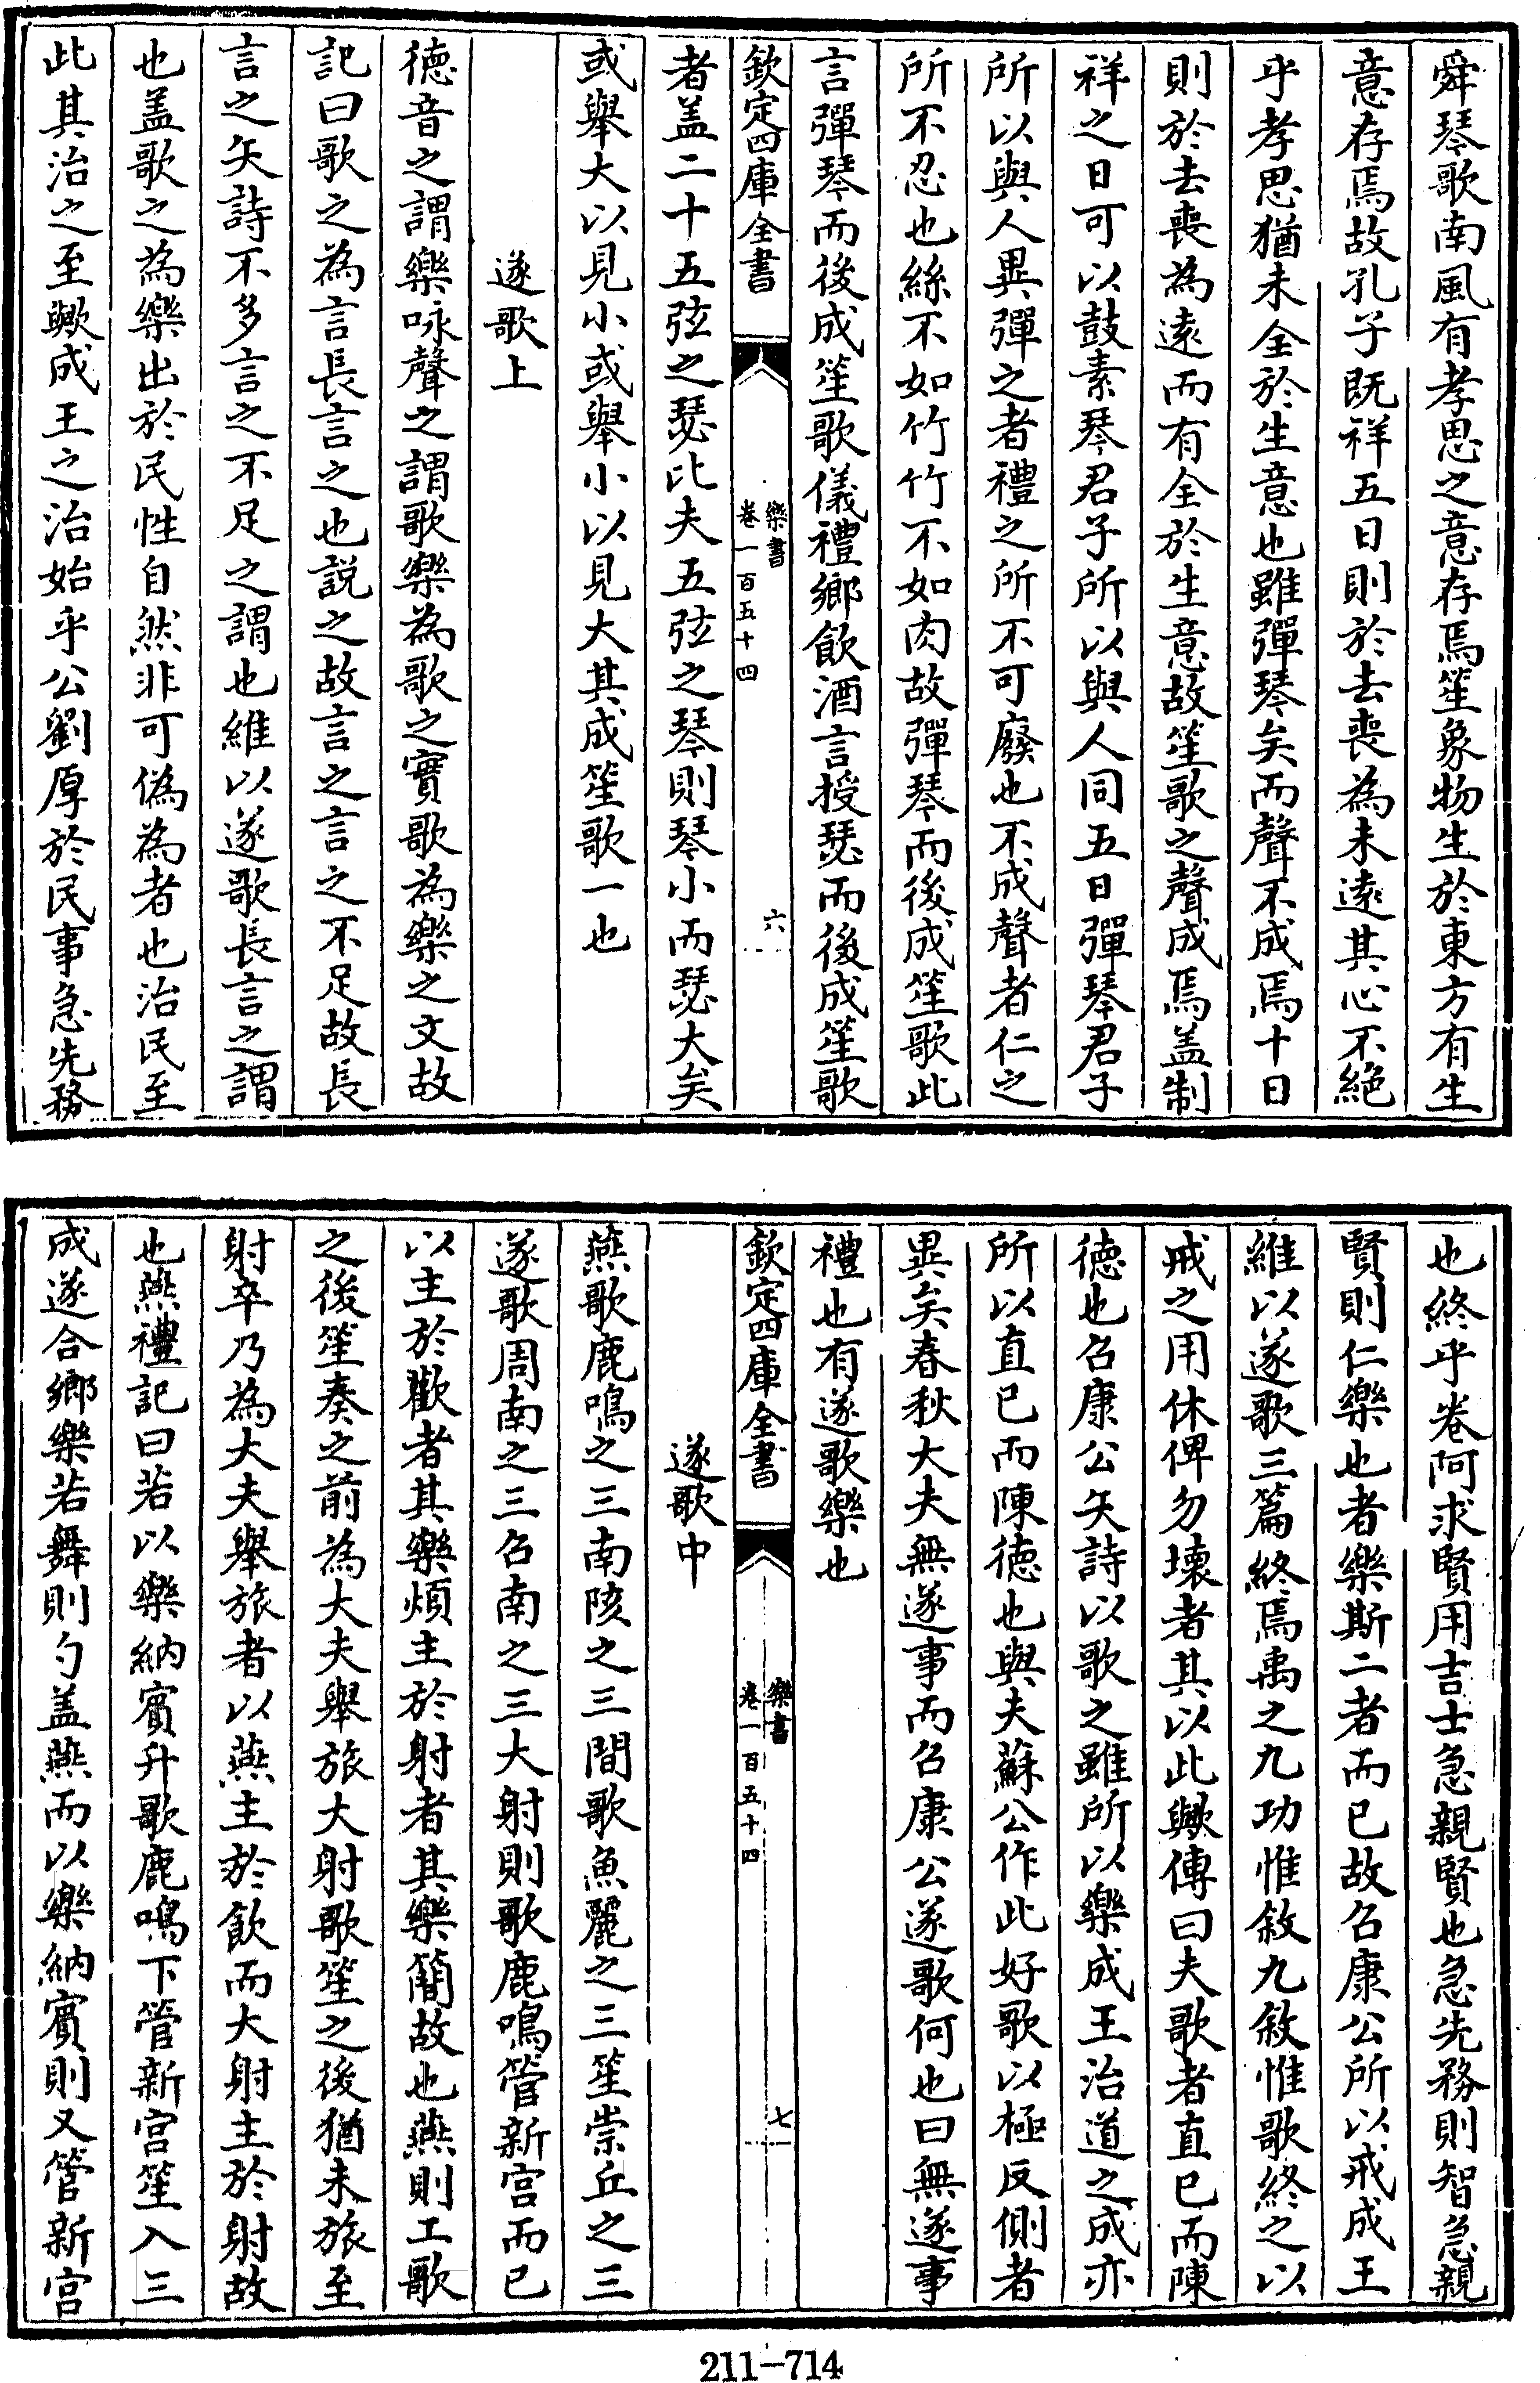 舜琴歌南風有孝思之意存焉笙象物生於東方有生
意存焉故孔子既祥五日則於去喪為未遠其心不絶
乎孝思猶未全於生意也雖彈琴矣而聲不成焉十日
則於去喪為遠而有全於生意故笙歌之聲成焉盖制
祥之日可以鼓素琴君子所以與人同五日彈琴君子
所以與人異彈之者禮之所不可廢也不成聲者仁之
所不忍也絲不如竹竹不如肉故彈琴而後成笙歌此
言彈琴而後成笙歌儀禮鄉飲酒言授瑟而後成笙歌
欽定四庫全書
樂書
卷一百五十四
六
者盖二十五弦之瑟比夫五弦之琴則琴小而瑟大矣
或舉大以見小或舉小以見大其成笙歌一也
遂歌上
德音之謂樂咏聲之謂歌樂為歌之實歌為樂之文故
記曰歌之為言長言之也説之故言之言之不足故長
言之矢詩不多言之不足之謂也維以遂歌長言之謂
也盖歌之為樂出於民性自然非可偽為者也治民至
此其治之至歟成王之治始乎公劉厚於民事急先務
也終乎卷阿求賢用吉士急親賢也急先務則智急親
賢則仁樂也者樂斯二者而已故召康公所以戒成王
維以遂歌三篇終焉禹之九功惟敘九敘惟歌終之以
戒之用休俾勿壊者其以此歟傳曰夫歌者直已而陳
德也召康公矢詩以歌之雖所以樂成王治道之成亦
所以直已而陳德也與夫蘇公作此好歌以極反側者
異矣春秋大夫無遂事而召康公遂歌何也曰無遂事
禮也有遂歌樂也
欽定四庫全書
樂書
卷一百五十四
七
遂歌中
燕歌鹿鳴之三南陔之三間歌魚麗之三笙崇丘之三
遂歌周南之三召南之三大射則歌鹿鳴管新宫而已
以主於歡者其樂煩主於射者其樂簡故也燕則工歌
之後笙奏之前為大夫舉旅大射歌笙之後猶未旅至
射卒乃為大夫舉旅者以燕主於飲而大射主於射故
也燕禮記曰若以樂納賓升歌鹿鳴下管新宫笙入三
成遂合鄉樂若舞則勺盖燕而以樂納賓則又管新宫
211-714